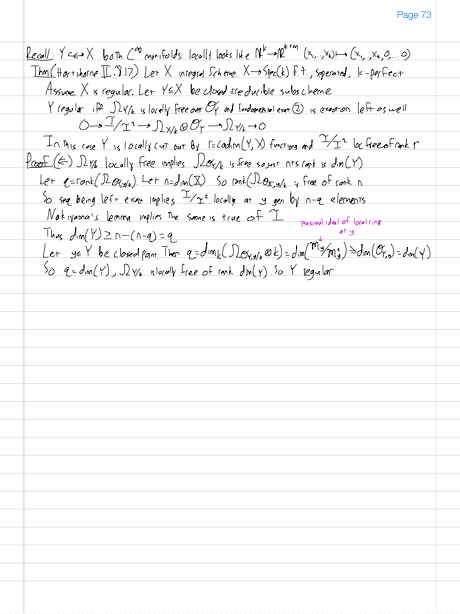 Page 73
Recall: Y ↪ X both C^∞ manifolds locally looks like ℝ^k → ℝ^{k+m} (x₁,...,x_k) ↦ (x₁,...,x_k,0,...0)
Thm (Hartshorne II.8.17) Let X integral scheme X → Spec(k) f.t., separated, k-perfect
Assume X is regular. Let Y ⊆ X be closed irreducible subscheme
Y regular iff Ω_{Y/k} is locally free over O_Y and fundamental exact (2) is exact on left as well
0 → I/I² → Ω_{X/k} ⊗ O_Y → Ω_{Y/k} → 0
In this case Y is locally cut out by r = codim(Y,X) functions and I/I² loc free of rank r
Proof (⇐) Ω_{Y/k} locally free implies Ω is free so just nts rank is dim(Y)
Let q = rank(Ω). Let n = dim(X) So rank(Ω is free of rank n
So seq being left exact implies I/I² locally at y gen by n-q elements
Nakayama's lemma implies the same is true of I
maximal ideal of local ring
at y
Thus dim(Y) ≥ n-(n-q) = q
Let y ∈ Y be closed point. Then q = dim_k(Ω ⊗ k) = dim(m_y/m_y²) ≥ dim(O_{Y,y}) = dim(Y)
So q = dim(Y), Ω_{Y/k} is locally free of rank dim(Y). So Y regular